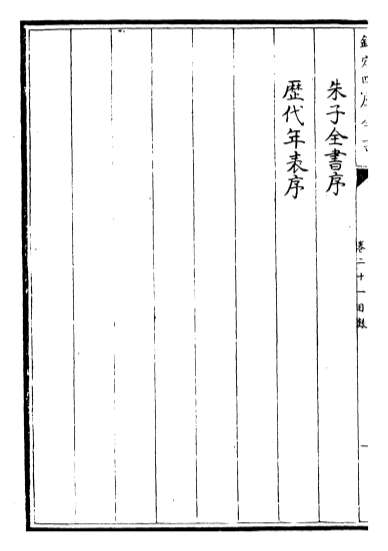 欽定四庫全書
卷二十一目錄
朱子全書序
歴代年表序